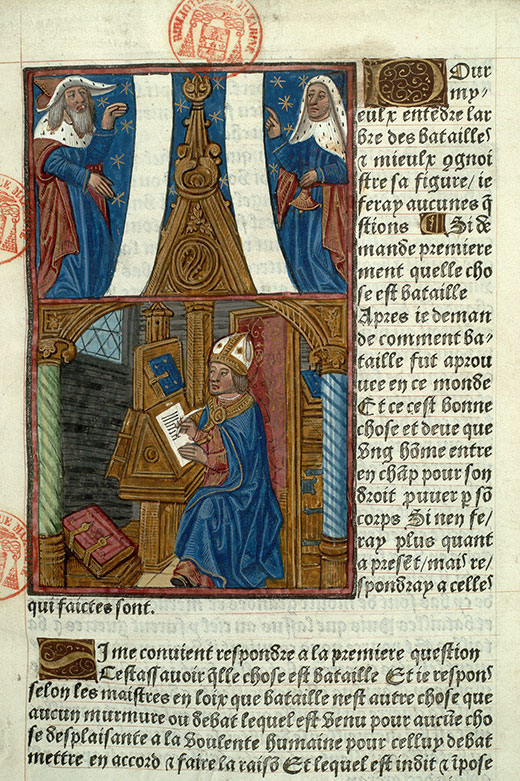 Pour
my-
eulx entēdre lar
bre des batailles
⁊ mieulx ꝯgnoi
stre sa figure/ie
feray aucunes q̄
stions Si de
mande premiere
ment quelle cho
se est bataille
Apres ie deman
de comment ba-
taille fut aprou
uee en ce monde
Et ce cest bonne
chose et deue que
ung hōme entre
en chāp pour son
droit prouver p sō
corps Si nen fe-
ray plus quant
a presēt/mais re-
spondray a celles
qui faictes sont.
SI me convient respondre a la premiere question
Cestassavoir q̄lle chose est bataille Et ie respon
selon les maistres en loix que bataille nest autre chose que
aucun murmure ou debat lequel est venu pour aucūe cho
se desplaisante a la voulente humaine pour celluy debat
mettre en accord ⁊ faire la raisō Et lequel est indit ⁊ ipose